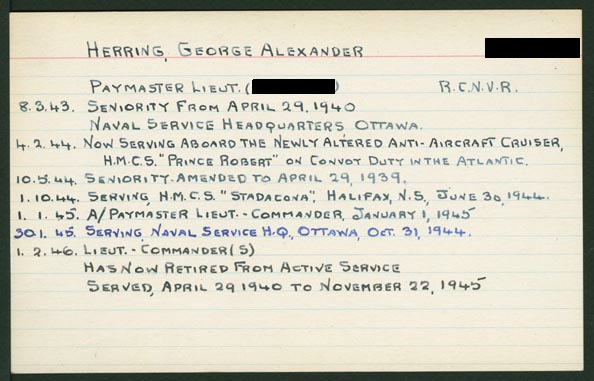 HERRING, GEORGE ALEXANDER
PAYMASTER LIEUT. ( ) R.C.N.V.R.
8.3.43. SENIORITY FROM APRIL 29, 1940
NAVAL SERVICE HEADQUARTERS OTTAWA.
4.2.44. NOW SERVING ABOARD THE NEWLY ALTERED ANTI-AIRCRAFT CRUISER,
H.M.C.S. "PRINCE ROBERT" ON CONVOY DUTY IN THE ATLANTIC.
10.5.44. SENIORITY AMENDED TO APRIL 29, 1939.
1.10.44. SERVING, H.M.C.S. "STADACONA", HALIFAX, N.S., JUNE 30, 1944.
1.1.45. A/PAYMASTER LIEUT.-COMMANDER, JANUARY 1, 1945
30.1.45. SERVING, NAVAL SERVICE H.Q., OTTAWA, OCT. 31, 1944.
1.2.46. LIEUT.-COMMANDER (S)
HAS NOW RETIRED FROM ACTIVE SERVICE
SERVED, APRIL 29 1940 TO NOVEMBER 22, 1945